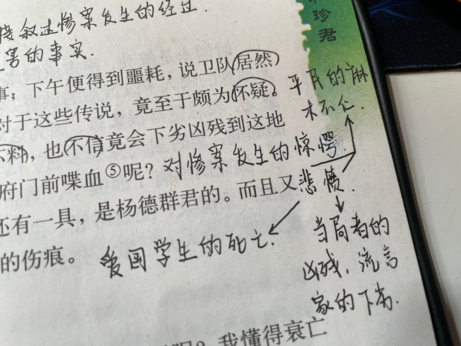 接叙述惨案发生的经过
害的事实.
珍君
事；下午便得到噩耗，说卫队居然
对于这些传说，竟至于颇为怀疑。
平民的麻
木不仁
不料，也不信竟会下劣凶残到这地
府门前喋血⑤呢？对惨案发生的惊愕.
还有一具，是杨德群君的。而且又悲愤
的伤痕。爱国学生的死亡.
当局者的
凶残，流言
家的下劣.
我懂得衰亡